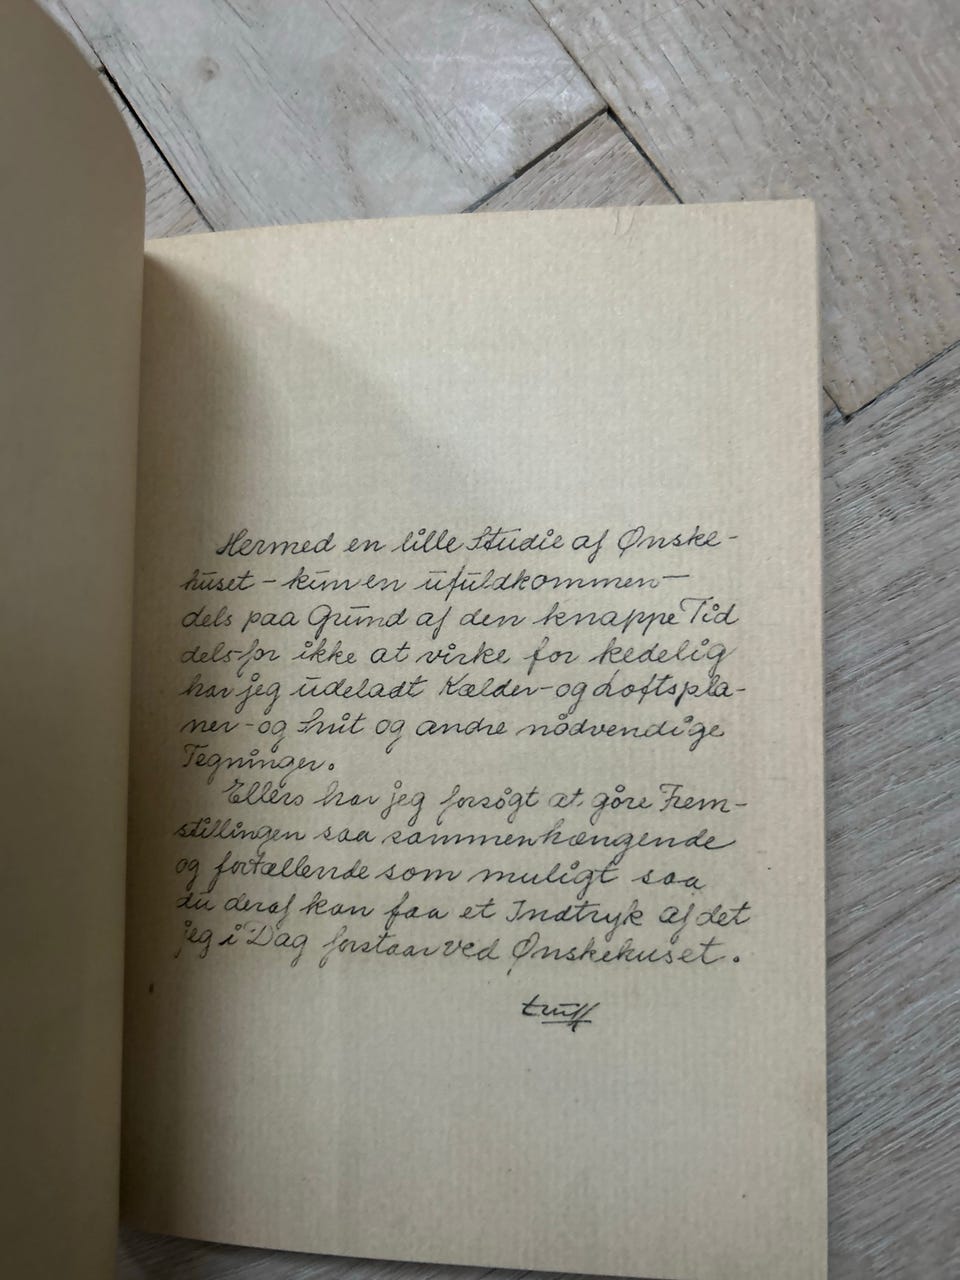 Hermed en lille Studie af Ønske-
huset - kun en ufuldkommen -
dels paa Grund af den knappe Tid
dels for ikke at virke for kedelig
har jeg udeladt Kælder- og Loftspla-
ner - og Snit og andre nødvendige
Tegninger.
Ellers har jeg forsøgt at gøre Frem-
stillingen saa sammenhængende
og fortællende som muligt saa
du deraf kan faa et Indtryk af det
jeg i Dag forstaar ved Ønskehuset.